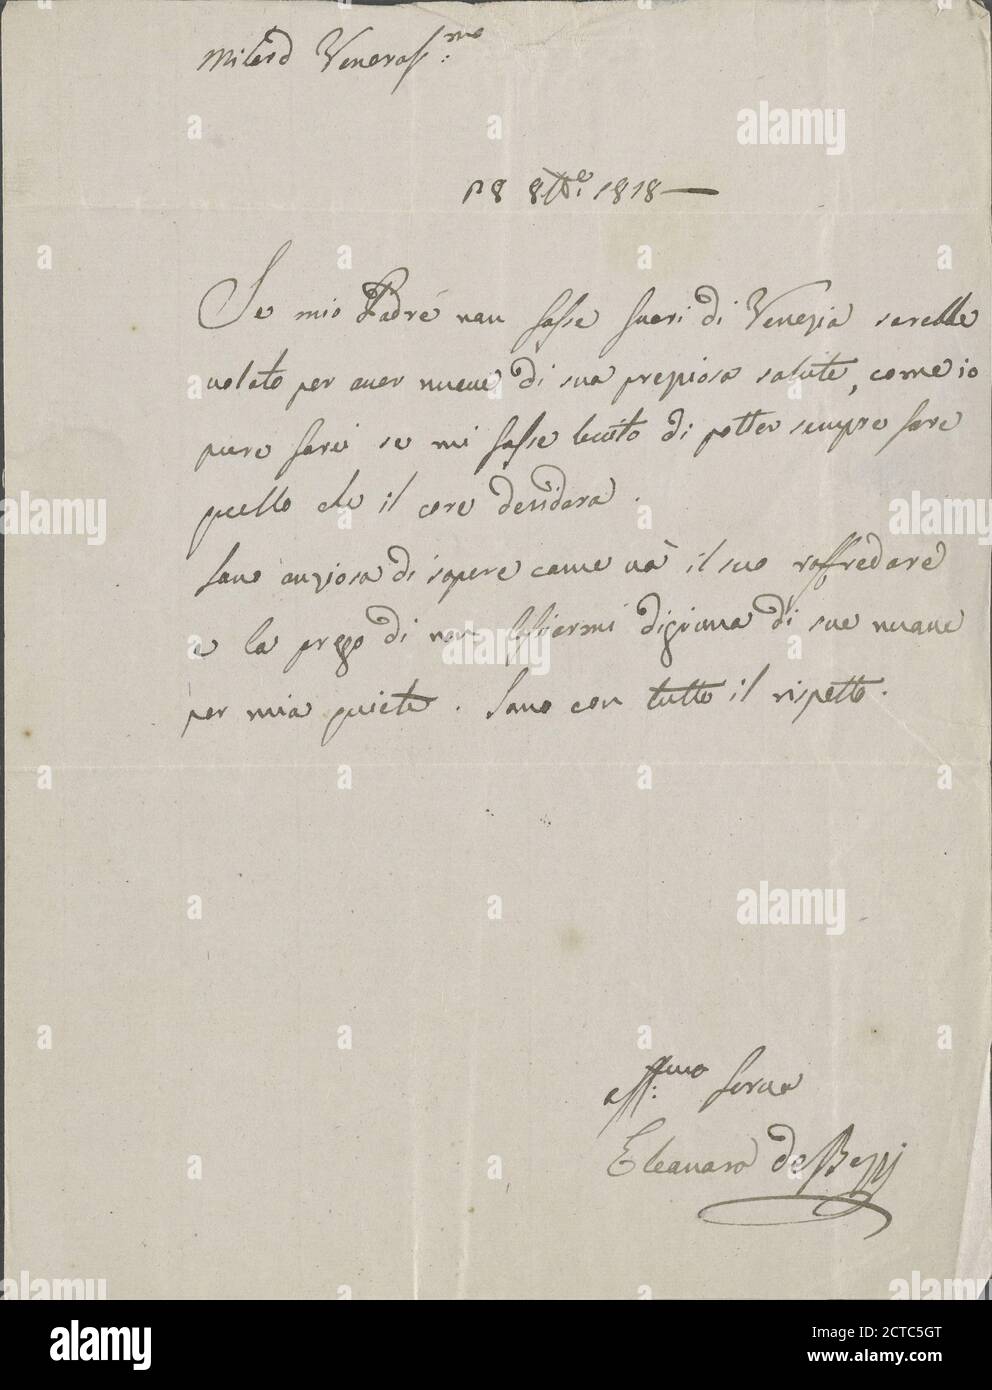 Milord Veneras:mo
P 8 8tte: 1818—
Se mio Padre non fosse fuori di Venezia sarebbe
volato per aver nuove di sua prepiosa salute, come io
pure farei se mi fosse lecito di potter sempre fare
quello che il core desidera.
Sono anziosa di sapere come và il suo raffredore
e la prego di non lasciarmi digiuna di sue nuove
per mia quiete. Sono con tutto il rispetto.
aff:mo serva
Eleanara de Bezzi
alamy
Image ID: 2CTC5GT
www.alamy.com